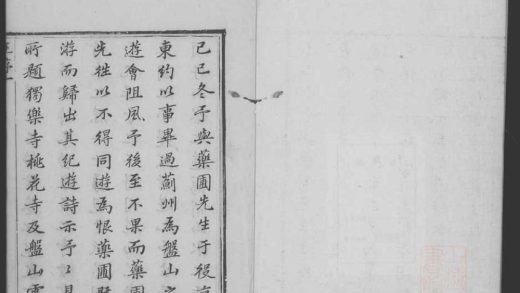 己巳冬予與藥圃先生于役京
東約以事畢過薊州為盤山之
遊會阻風予後至不果而藥圃
先往以不得同遊為恨藥圃既
游而歸出其紀遊詩示予予見
所題獨樂寺桃花寺及盤山雲